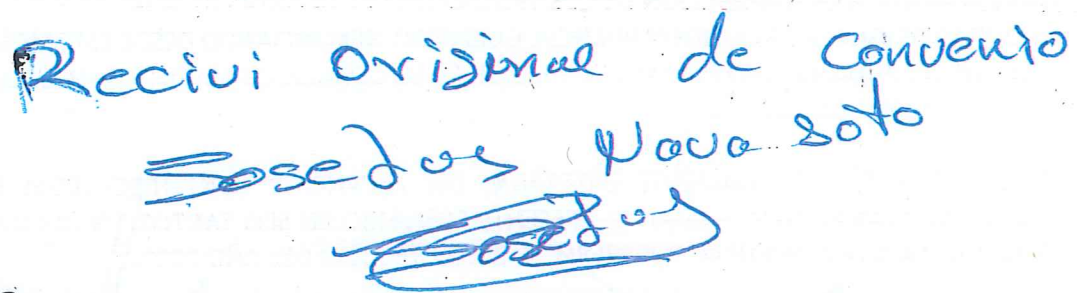 Recivi Original de Convenio
Josedos Nava soto
Josedos